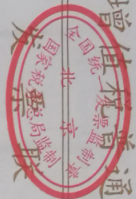 增值税普通
发票联
全国统一发票监制章
北京
国家税务局监制